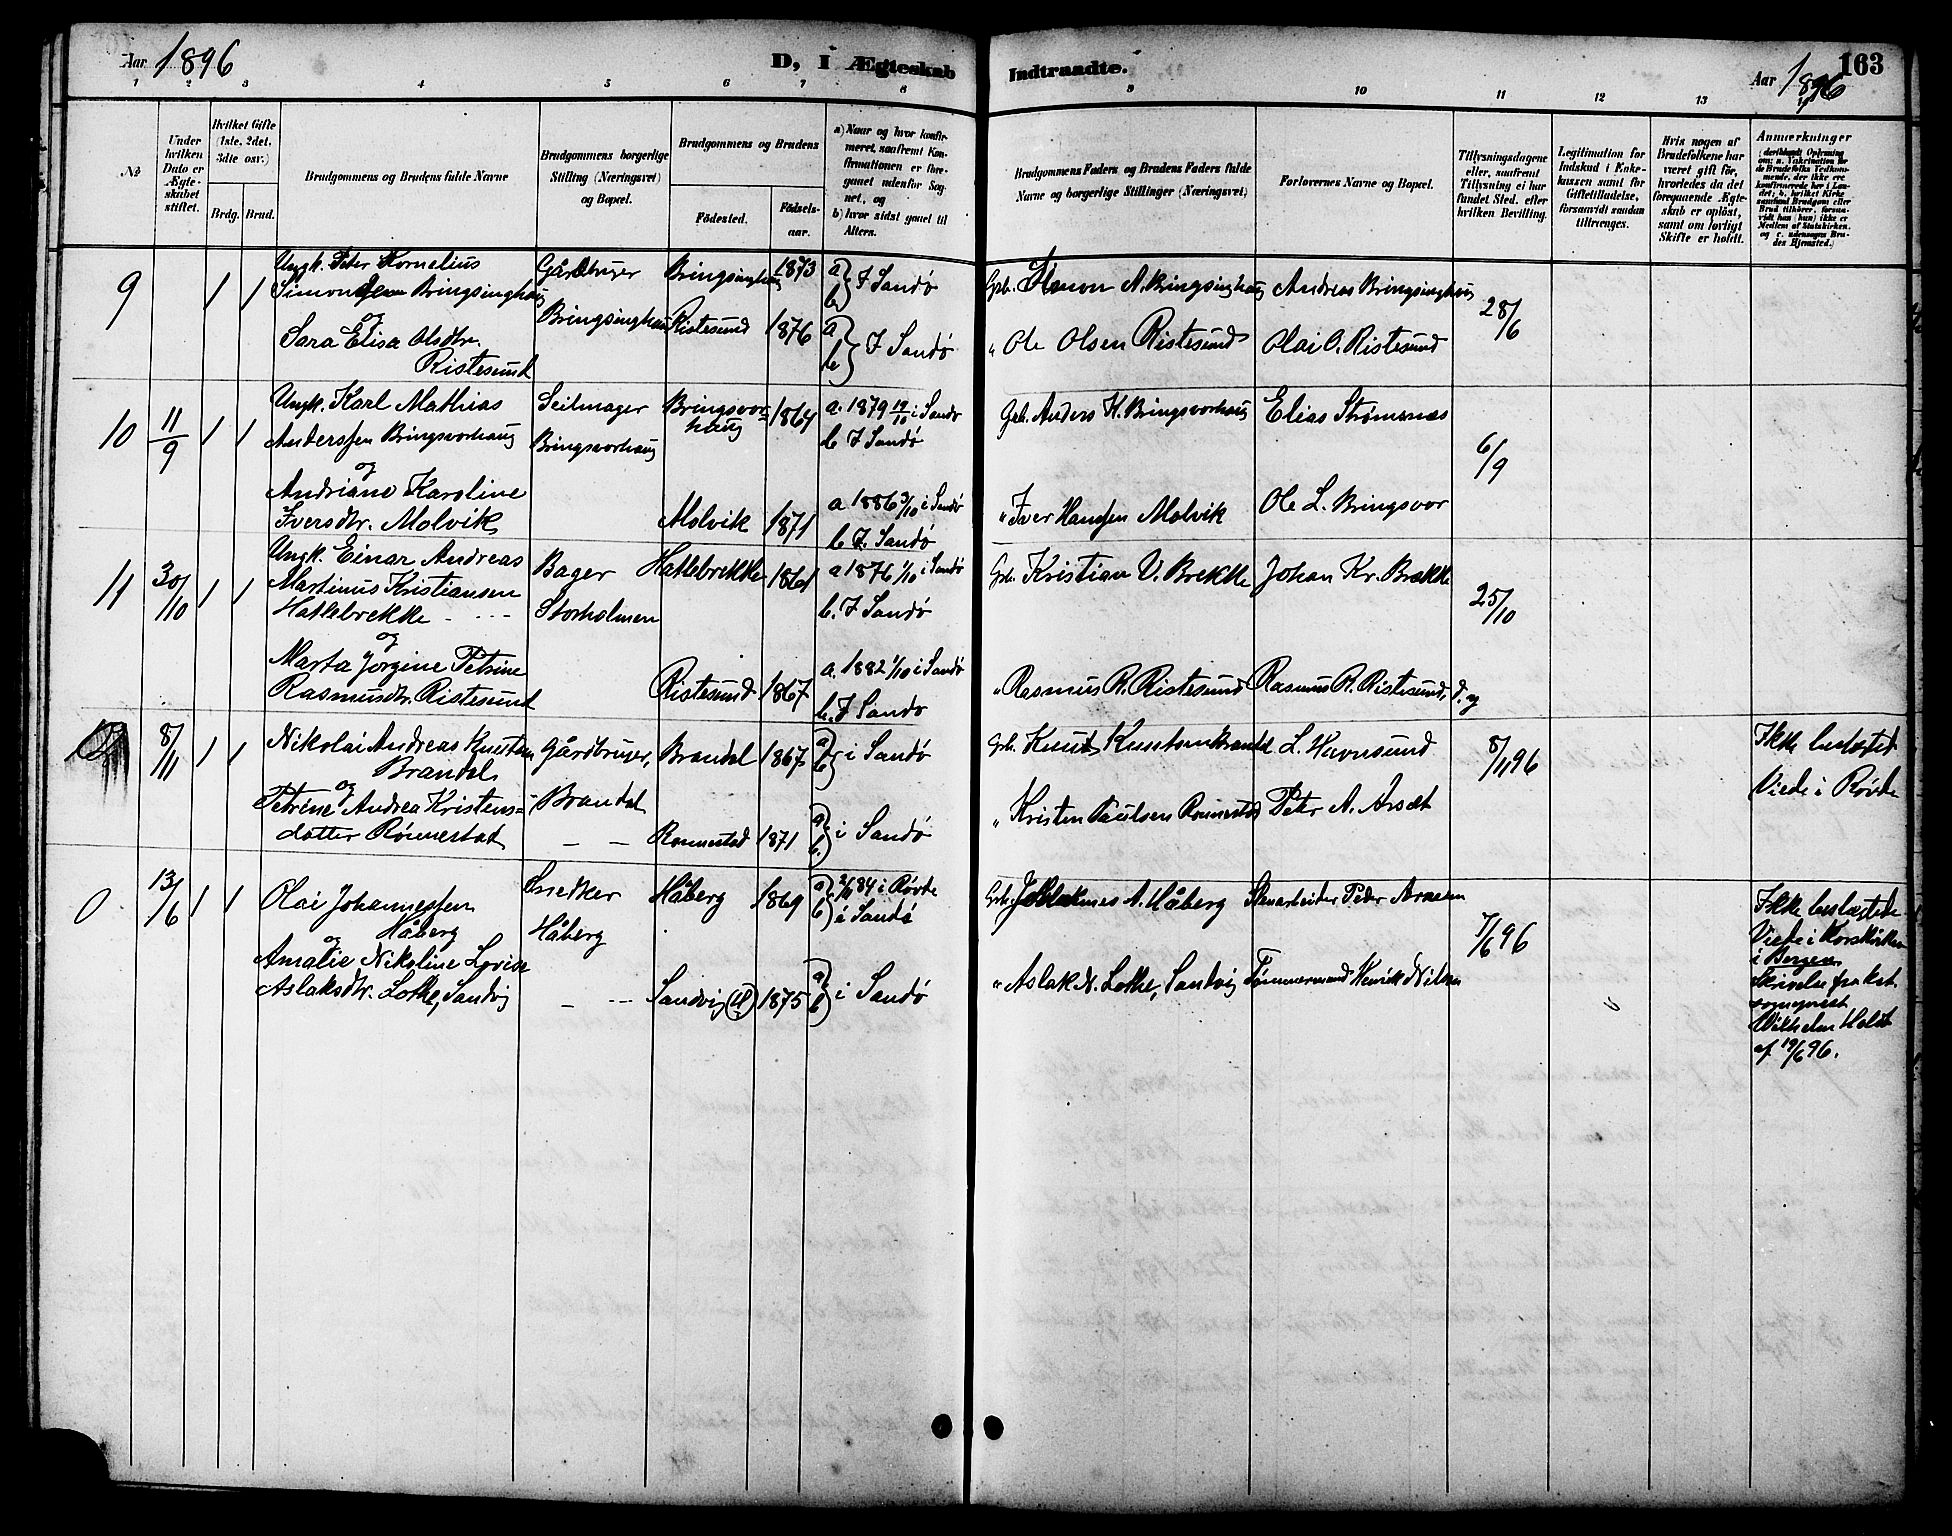 Aar 1896
D, I Ægteskab
Indtraadte.
163
Aar 1896
1 2 3 4 5 6 7 8 9 10 11 12 13 14
No
Under hvilken Dato er Ægteskabet stiftet.
Hvilket Gifte (1ste, 2det, 3die osv.)
Brdg. Brud.
Brudgommens og Brudens fulde Navne
Brudgommens borgerlige Stilling (Næringsvei) og Bopæl.
Brudgommens og Brudens
Födested.
Födsels-aar.
a) Naar og hvor konfirmeret, saafremt Konfirmationen er foregaaet udenfor Sognet, og
b) hvor sidst gaaet til Alters.
Brudgommens Faders og Brudens Faders fulde Navne og borgerlige Stillinger (Næringsvei)
Forlovernes Navne og Bopæl.
Tillysningsdagene eller, saafremt Tillysning ei har fundet Sted, efter hvilken Bevilling.
Legitimation for Indskud i Enkekassen samt for Giftetilladelse, forsaavidt saadan tiltrænges.
Hvis nogen af Brudefolkene har været gift før, hvorledes da det foregaaende Ægteskab er oplöst, samt om lovligt Skifte er holdt.
Anmærkninger
9
1 1
Ungk. Peter Kornelius
Simonsen Bringsinghaug
og
Sara Elisa Olsdtr.
Ristesund
Gårdbruger
Bringsinghaug
Bringsinghaug 1873
Ristesund 1876
a b } I Sandø
a b } I Sandø
Grb. Simon A. Bringsinghaug
" Ole Olsen Ristesund
Andreas Bringsinghaug
Olai O. Ristesund
28/6
10
11/9
1 1
Ungk. Karl Mathias
Anderssen Bringsvorhaug
og
Andriane Karoline
Iversdtr. Molvik
Seilmager
Bringsvorhaug
Bringsvorhaug 1864
Molvik 1871
a. 1879 19/10 i Sandø
b I Sandø
a 1886 3/10 i Sandø
b I. Sandø
Grb. Anders K. Bringsvorhaug
" Iver Hanssen Molvik
Elias Strømsnæs
Ole L. Bringsvor
6/9
11
30/10
1 1
Ungk. Einar Andreas
Martinus Kristiansen
Hatlebrekke
og
Marta Jorgine Petrine
Rasmusdtr. Ristesund
Bager
Storholmen
Hatlebrekke 1861
Ristesund 1867
a 1876 1/10 i Sandø
b. I Sandø
a. 1882 1/10 i Sandø
b. I Sandø
Grb. Kristian V. Brekke
" Rasmus R. Ristesund
Johan Kr. Brekke
Rasmus R. Ristesund, d. y
25/10
8/11
1 1
Nikolai Andreas Knutsen
Brandal
og
Petrine Andrea Kristens-
datter Rønnestad
Gårdbruger,
Brandal
Brandal 1867
Rønnestad 1871
a b } i Sandø
a b } i Sandø
Grb. Knud Knutsen Brandal
" Kristen Paulsen Rønnestad
L. Havnsund
Peter A. Arsæt
8/11 96
Ikke beslægtet
Viede i Røvde
0
13/6
1 1
Olai Johannessen
Håberg
og
Amalie Nikoline Lovise
Aslaksdtr. Lothe, Sandvig
Snedker
Håberg
Håberg 1869
Sandvig 1875
84 i Røvde
i Sandø
a b } i Sandø
Grb. Johannes A. Håberg
" Aslak N. Lothe, Sandvig
Stenarbeider Peder Arnesen
Tømmermand Henrik Nilsen
7/6 96
Ikke beslægtede
Viede i Korskirken
i Bergen
Skrivelse fra kst.
sognepræst
Wilhelm Holst
af 19/6 96.